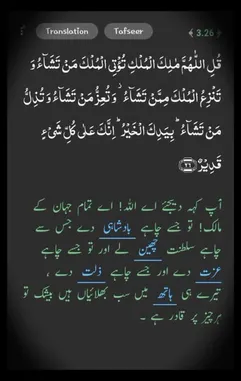 Translation Tafseer ﴾ 3.26 ﴿
قُلِ اللّٰهُمَّ مٰلِكَ الْمُلْكِ تُؤْتِی الْمُلْكَ مَنْ تَشَآءُ وَ
تَنْزِعُ الْمُلْكَ مِمَّنْ تَشَآءُ ؗ وَ تُعِزُّ مَنْ تَشَآءُ وَ تُذِلُّ
مَنْ تَشَآءُ ؕ بِیَدِكَ الْخَیْرُ ؕ اِنَّكَ عَلٰی كُلِّ شَیْءٍ
قَدِیْرٌ ﴿۲۶﴾
آپ کہہ دیجئے اے اللہ! اے تمام جہان کے
مالک! تو جسے چاہے بادشاہی دے جس سے
چاہے سلطنت چھین لے اور تو جسے چاہے
عزت دے اور جسے چاہے ذلت دے ،
تیرے ہی ہاتھ میں سب بھلائیاں ہیں بیشک تو
ہرچیز پر قادر ہے ۔